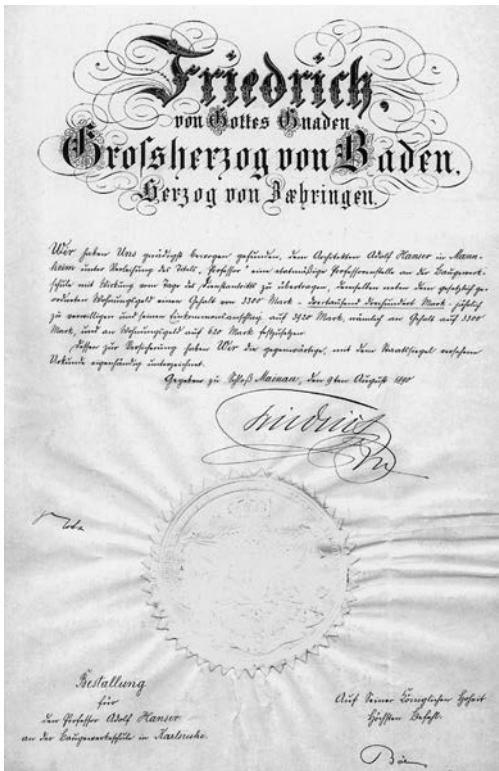 Friedrich,
von Gottes Gnaden
Großherzog von Baden,
Herzog von Zæhringen.
Wir haben Uns gnädigst bewogen gefunden, dem Architekten Adolf Hanser in Mann-
heim unter Verleihung des Titels „Professor" eine etatmäßige Professorenstelle an der Baugewerk-
schule mit Wirkung vom Tage des Dienstantritts zu übertragen, demselben neben dem gesetzlich ge-
ordneten Wohnungsgeld einen Gehalt von 3300 Mark - dreitausend dreihundert Mark - jährlich
zu verwilligen und seinen Einkommensanschlag auf 3920 Mark, nämlich an Gehalt auf 3300
Mark, und an Wohnungsgeld auf 620 Mark festzusetzen.
Dessen zur Versicherung haben Wir die gegenwärtige, mit dem Staatssiegel versehene
Urkunde eigenhändig unterzeichnet.
Gegeben zu Schloß Mainau, den 9ten August 1890
Friedrich
Bestallung
für
den Professor Adolf Hanser
an der Baugewerkeschule in Karlsruhe.
Auf Seiner Königlichen Hoheit
Höchsten Befehl.